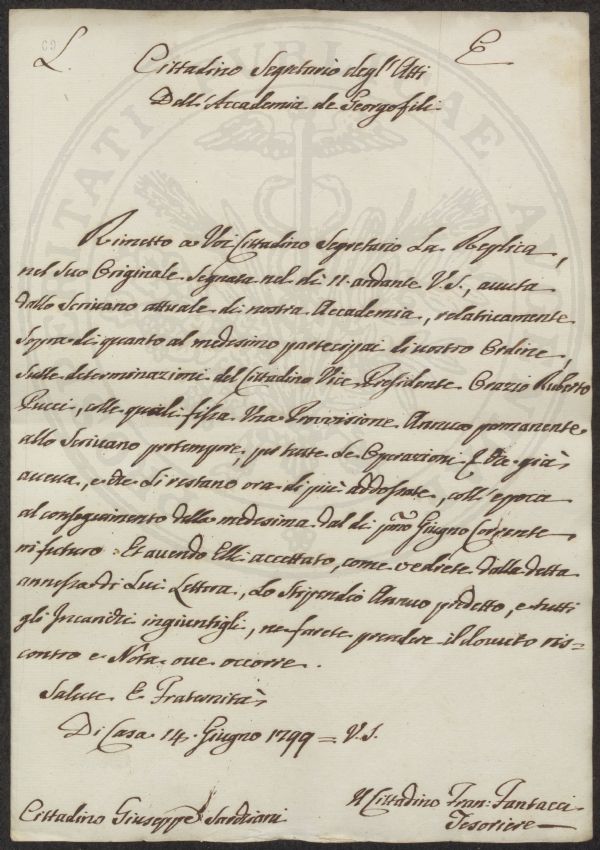 L. E
Cittadino Segretario degl'Atti
Dell'Accademia de Georgofili
Rimetto a Voi Cittadino Segretario La Replica,
nel Suo Originale Segnata nel dì 11. andante V.S., avuta
dallo Scrivano attuale di nostra Accademia, relativamente
Sopra di quanto al medesimo partecipai di vostro Ordine,
Sulle determinazioni del Cittadino Vice Presidente Orazio Ruberto
Pucci, colle quali fissa Una Provvisione Annua permanente
allo Scrivano protempore, per tutte Le Operazioni E che già
aveva, e che Li restano ora di più addossate, coll'epoca
al conseguimento della medesima dal dì primo Giugno Corrente
in futuro. Et avendo Elli accettato, come vedrete dalla detta
annessa di Lui Lettera, Lo Stipendio Annuo predetto, e tutti
gli Incarichi ingiuntigli, ne farete prendere il dovuto ris=
contro e Nota ove occorre.
Salute E Fraternità
Di Casa 14. Giugno 1799 = V.S.
Il Cittadino Fran: Fantacci
Tesoriere
Cittadino Giuseppe Sarchiani